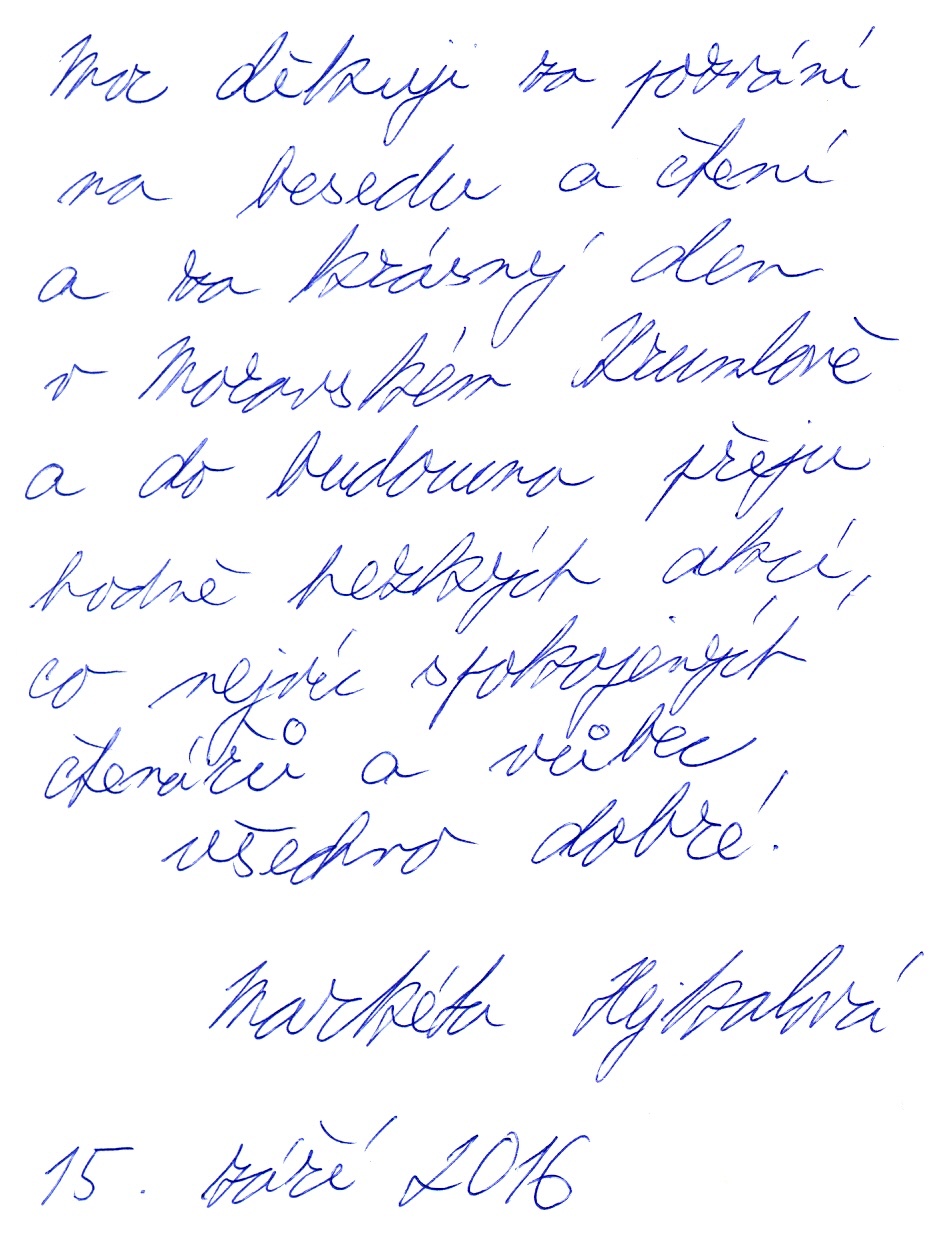 Moc děkuji za pozvání
na besedu a čtení
a za krásný den
v Moravském Krumlově
a do budoucna přeju
hodně hezkých akcí,
co nejvíc spokojených
čtenářů a vůbec
všechno dobré.
Markéta Hejkalová
15. září 2016